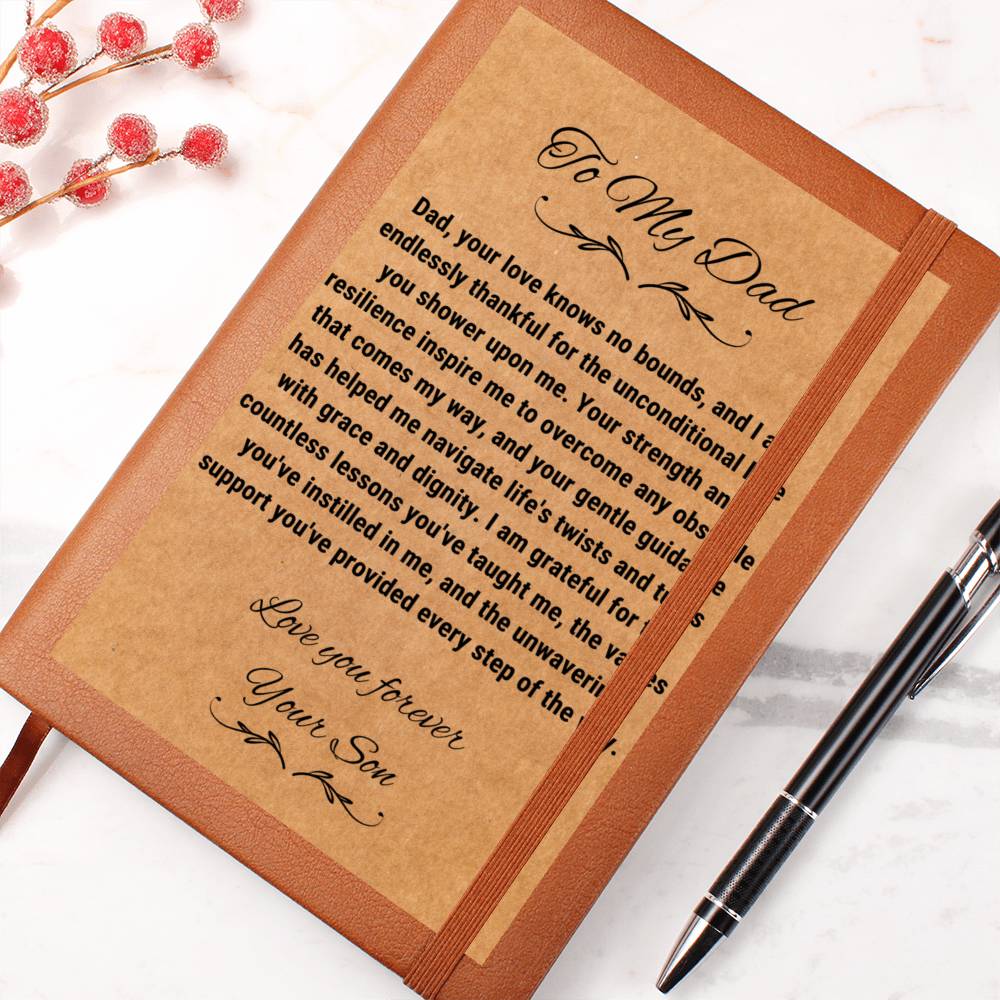 To My Dad
Dad, your love knows no bounds, and I a
endlessly thankful for the unconditional l e
you shower upon me. Your strength an
resilience inspire me to overcome any obs le
that comes my way, and your gentle guida e
has helped me navigate life's twists and tu s
with grace and dignity. I am grateful for t
countless lessons you've taught me, the va es
you've instilled in me, and the unwaverin
support you've provided every step of the y.
Love you forever
Your Son